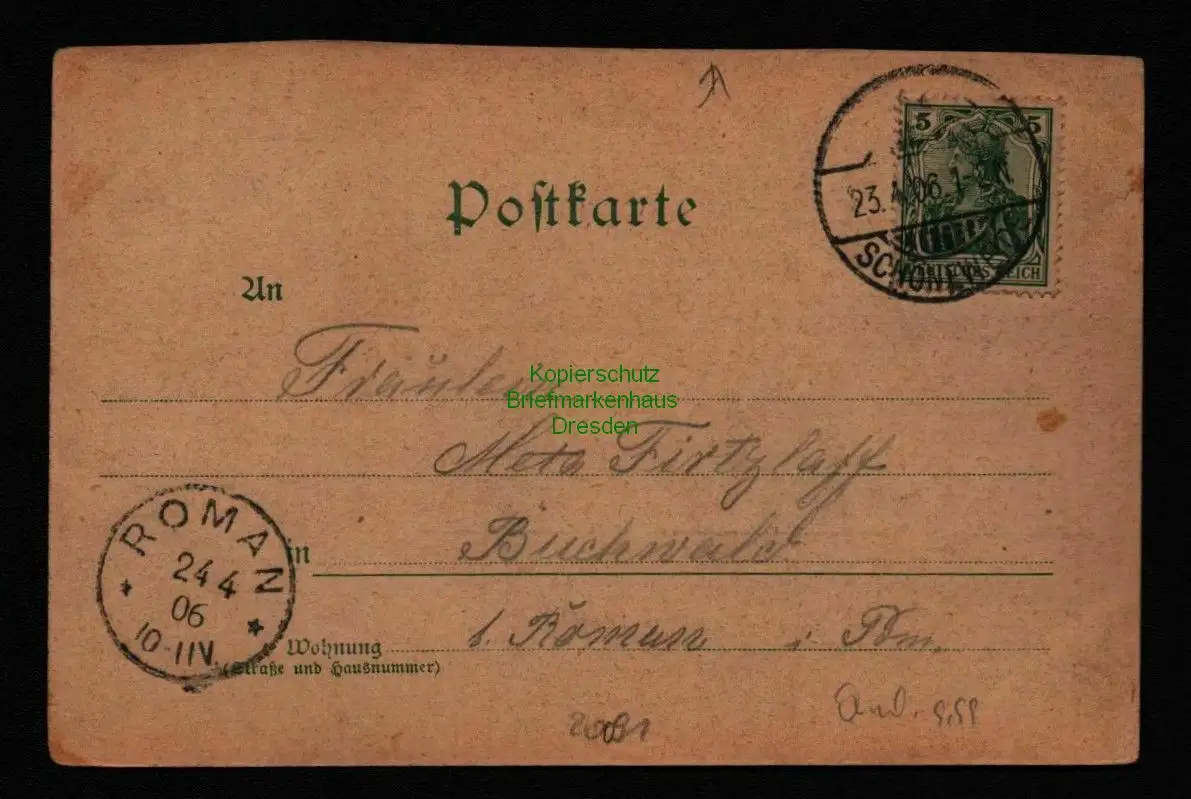 Postkarte
5 5
23.4.06.1-2
SCHÖNE
REICH
An
Fräulein
Kopierschutz
Briefmarkenhaus
Dresden
Meta Firtzlaff
Buchwald
in
b. Roman i. Pom.
ROMAN
24 4
06
10-11V.
Wohnung
(Straße und Hausnummer)